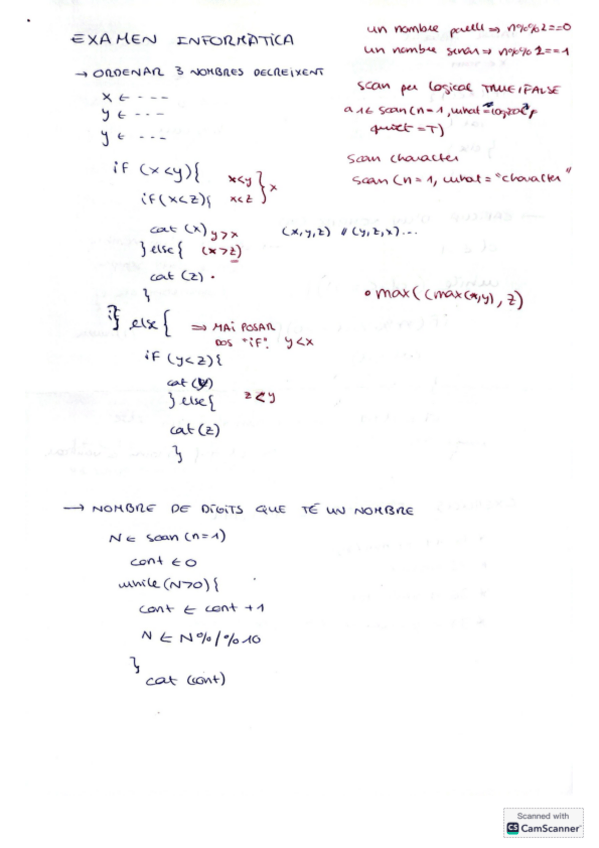 EXAMEN INFORMÀTICA
→ ORDENAR 3 NOMBRES DECREIXENT
x ← ---
y ← ---
y ← ---
if (x<y){ x<y
if(x<z){ x<z } x
cat (x) y>x (x,y,z) // (y,z,x)...
} else{ (x>z)
cat (z) .
}
} else{ ⇒ MAI POSAR
DOS "IF". y<x
if (y<z){
cat (y)
} else{ z<y
cat (z)
}
un nombre parell ⇒ n%%2==0
un nombre senar ⇒ n%%2==1
scan per logical TRUE/FALSE
a1← scan(n=1, what="logical",
quiet=T)
scan character
scan(n=1, what="character"
• max((max(x,y), z)
→ NOMBRE DE DÍGITS QUE TÉ UN NOMBRE
N ← scan (n=1)
cont ← 0
while (N>0){
cont ← cont +1
N ← N%/%10
}
cat (cont)
Scanned with
CS CamScanner